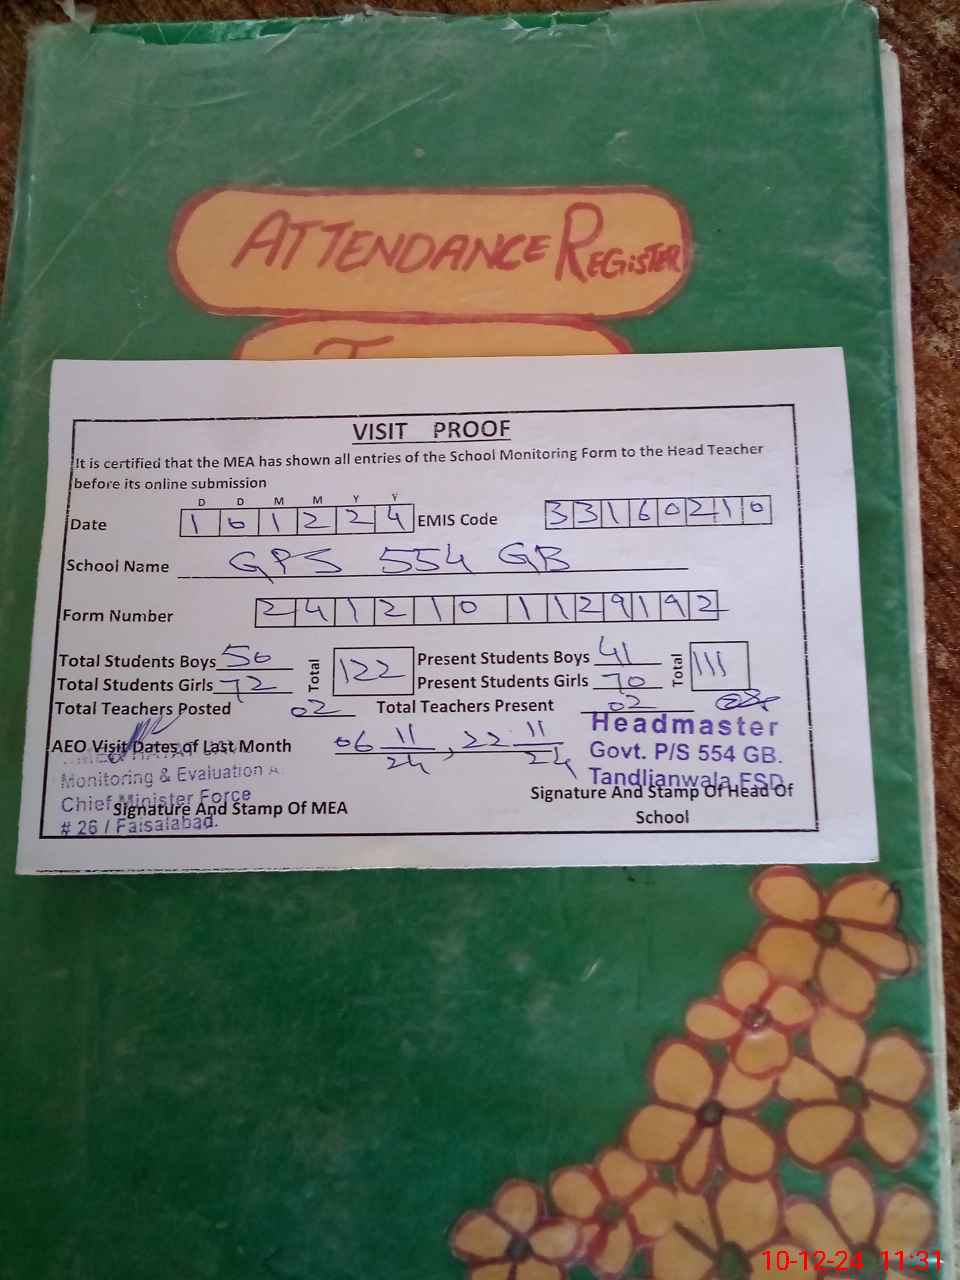 ATTENDANCE REGISTER
VISIT PROOF
It is certified that the MEA has shown all entries of the School Monitoring Form to the Head Teacher
before its online submission
D D M M Y Y
Date 1 0 1 2 2 4 EMIS Code 3 3 1 6 0 2 1 0
School Name GPS 554 GB
Form Number 2 4 1 2 1 0 1 1 2 9 1 9 2
Total Students Boys 50 Total 122 Present Students Boys 41 Total 111
Total Students Girls 72 Present Students Girls 70
Total Teachers Posted 02 Total Teachers Present 02
AEO Visit Dates of Last Month 06 11/24, 22 11/24
Headmaster
Govt. P/S 554 GB.
Tandlianwala FSD
Monitoring & Evaluation A.
Chief Minister Force
# 26 / Faisalabad.
Signature And Stamp Of MEA
Signature And Stamp Of Head Of
School
10-12-24 11:31